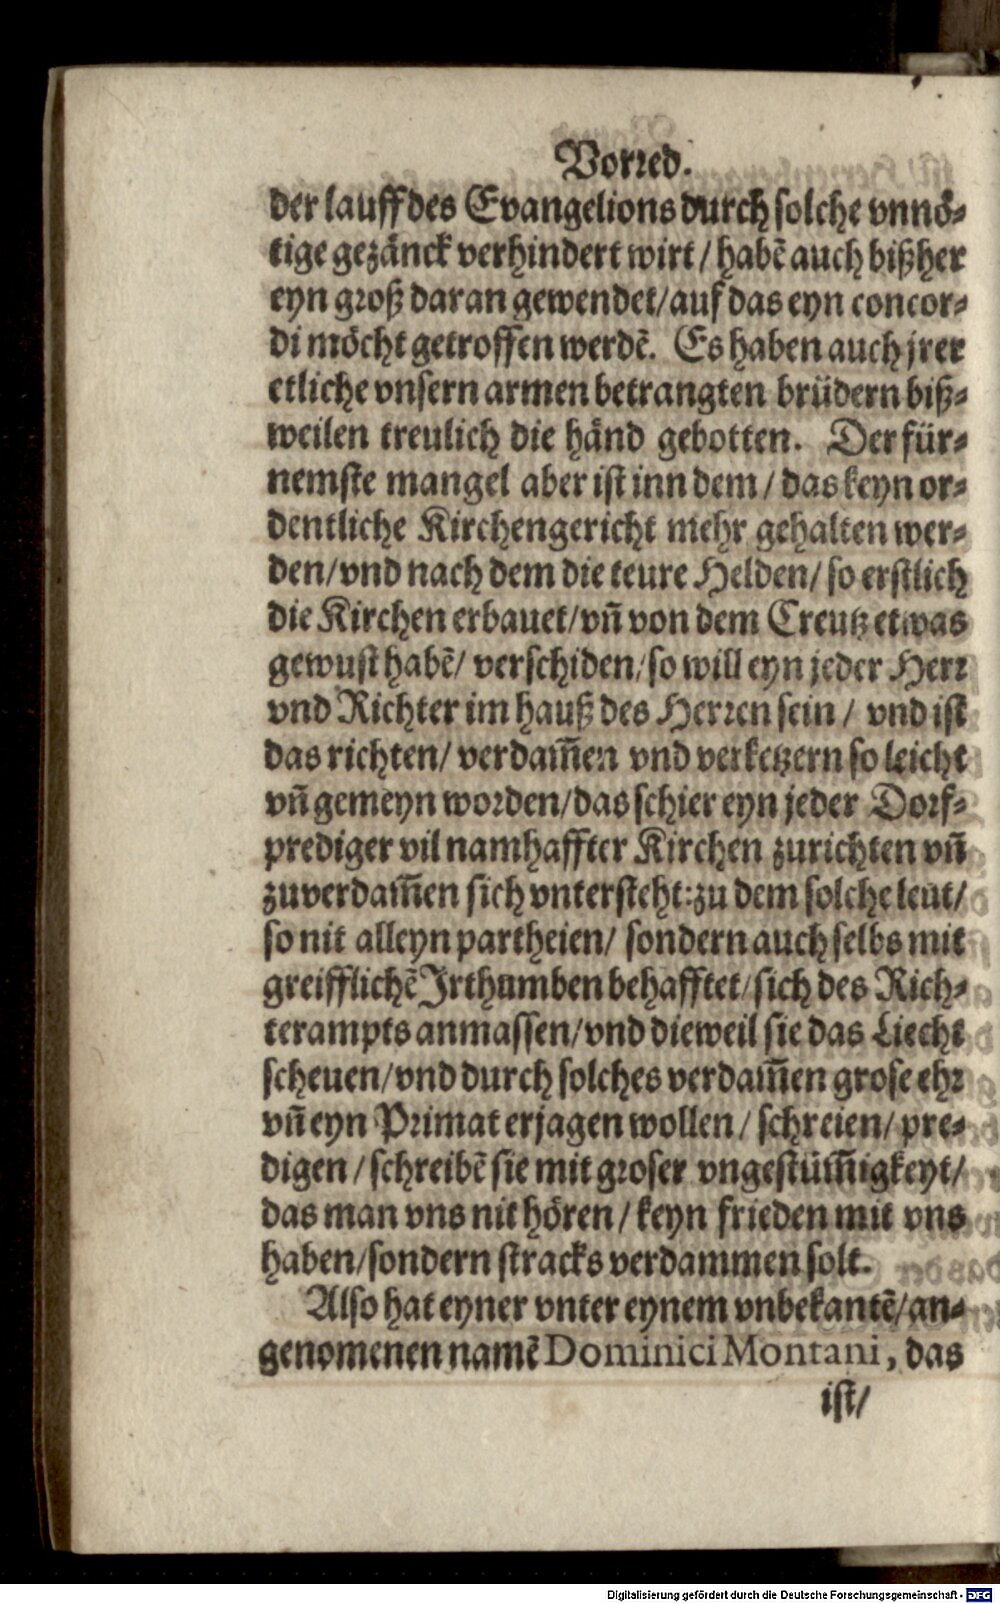 Vorred.
der lauff des Evangelions durch solche vnnö-
tige gezänck verhindert wirt / habē auch bißher
eyn groß daran gewendet/auf das eyn concor-
di möcht getroffen werdē. Es haben auch jrer
etliche vnsern armen betrangten brüdern biß-
weilen treulich die händ gebotten. Der für-
nemste mangel aber ist inn dem / das keyn or-
dentliche Kirchengericht mehr gehalten wer-
den/vnd nach dem die teure Helden/ so erstlich
die Kirchen erbauet/vn̄ von dem Creutz etwas
gewust habē/ verschiden/so will eyn jeder Herr
vnd Richter im hauß des Herren sein / vnd ist
das richten/ verdam̄en vnd verketzern so leicht
vn̄ gemeyn worden/das schier eyn jeder Dorf-
prediger vil namhaffter Kirchen zurichten vn̄
zuverdam̄en sich vntersteht:zu dem solche leut/
so nit alleyn partheien/ sondern auch selbs mit
greifflichē Irthumben behafftet/sich des Rich-
terampts anmassen/vnd dieweil sie das Liecht
scheuen/vnd durch solches verdam̄en grose ehr
vn̄ eyn Primat erjagen wollen / schreien/ pre-
digen / schreibē sie mit groser vngestüm̄igkeyt/
das man vns nit hören / keyn frieden mit vns
haben/sondern stracks verdammen solt.
Also hat eyner vnter eynem vnbekantē/an-
genomenen namē Dominici Montani, das
ist/
Digitalisierung gefördert durch die Deutsche Forschungsgemeinschaft - DFG